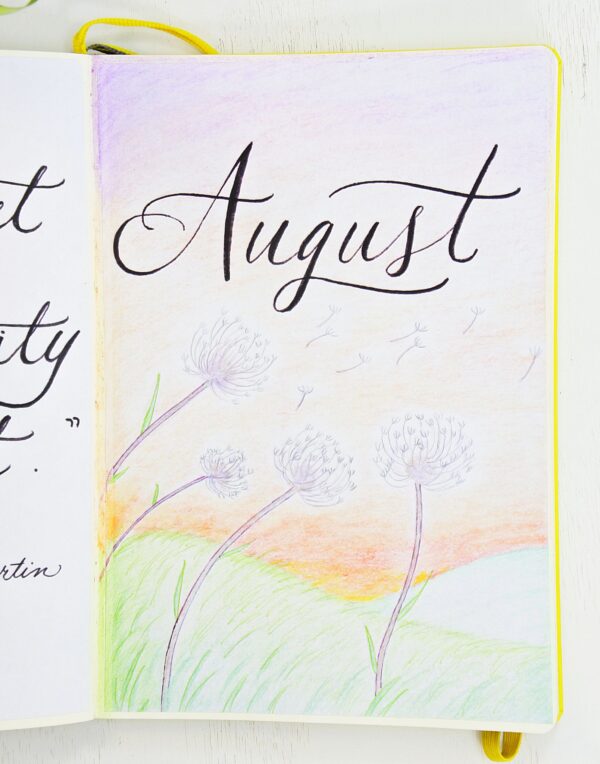 ity
rtin
August